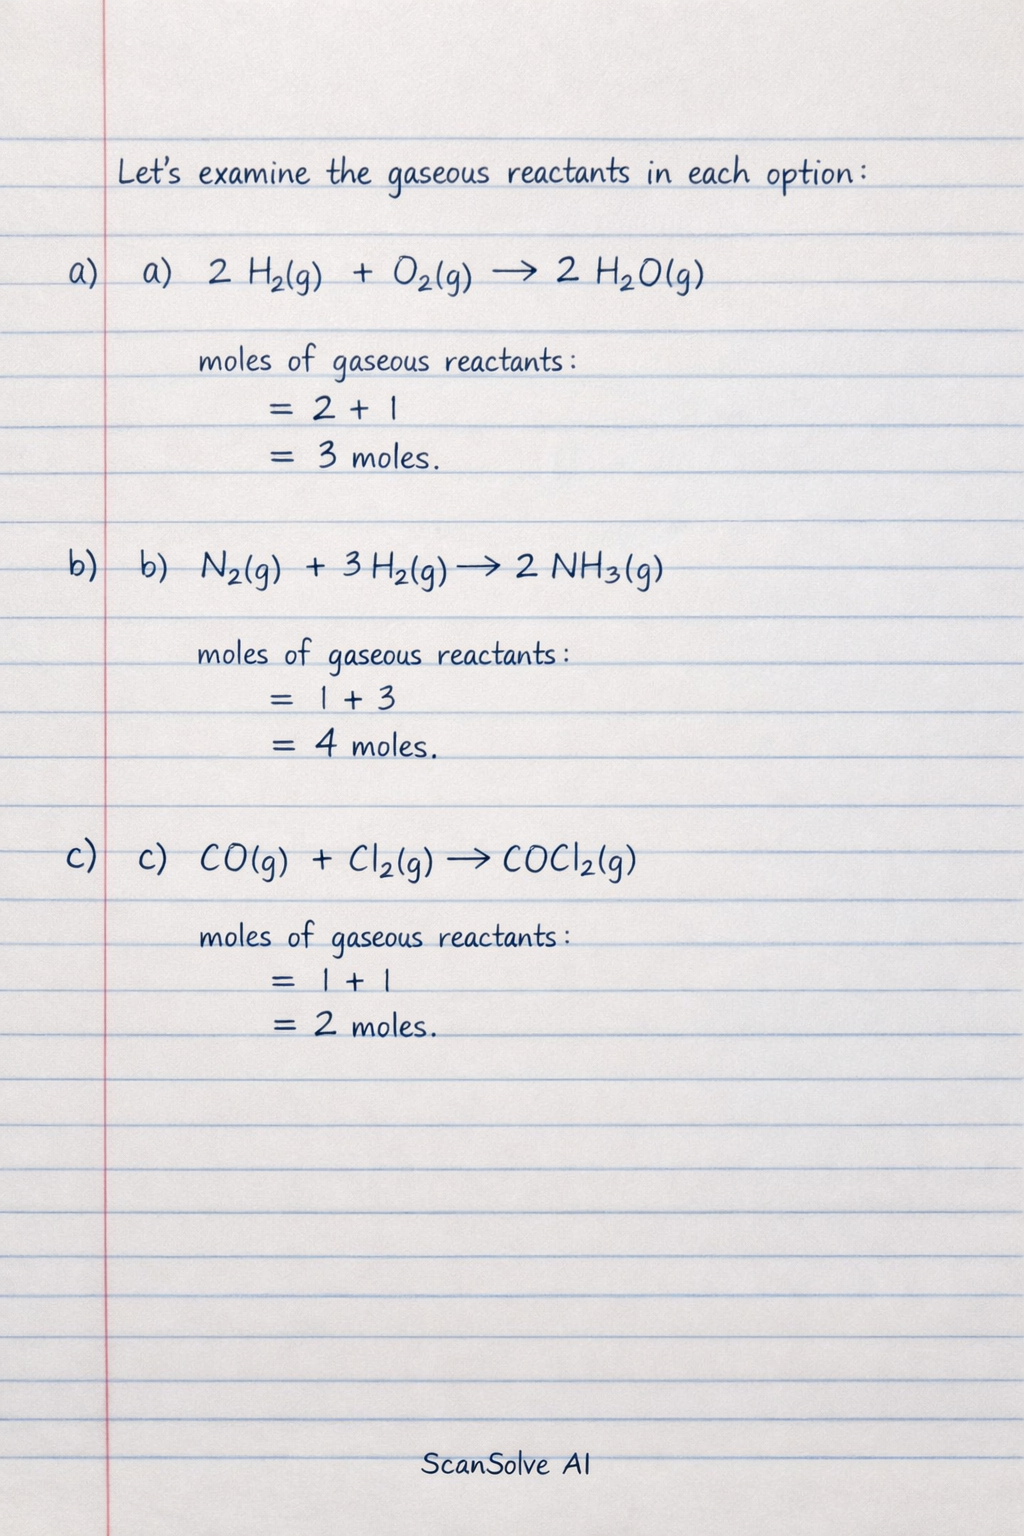 Let's examine the gaseous reactants in each option:
a) a) 2 H₂(g) + O₂(g) → 2 H₂O(g)
moles of gaseous reactants:
= 2 + 1
= 3 moles.
b) b) N₂(g) + 3 H₂(g) → 2 NH₃(g)
moles of gaseous reactants:
= 1 + 3
= 4 moles.
c) c) CO(g) + Cl₂(g) → COCl₂(g)
moles of gaseous reactants:
= 1 + 1
= 2 moles.
ScanSolve AI